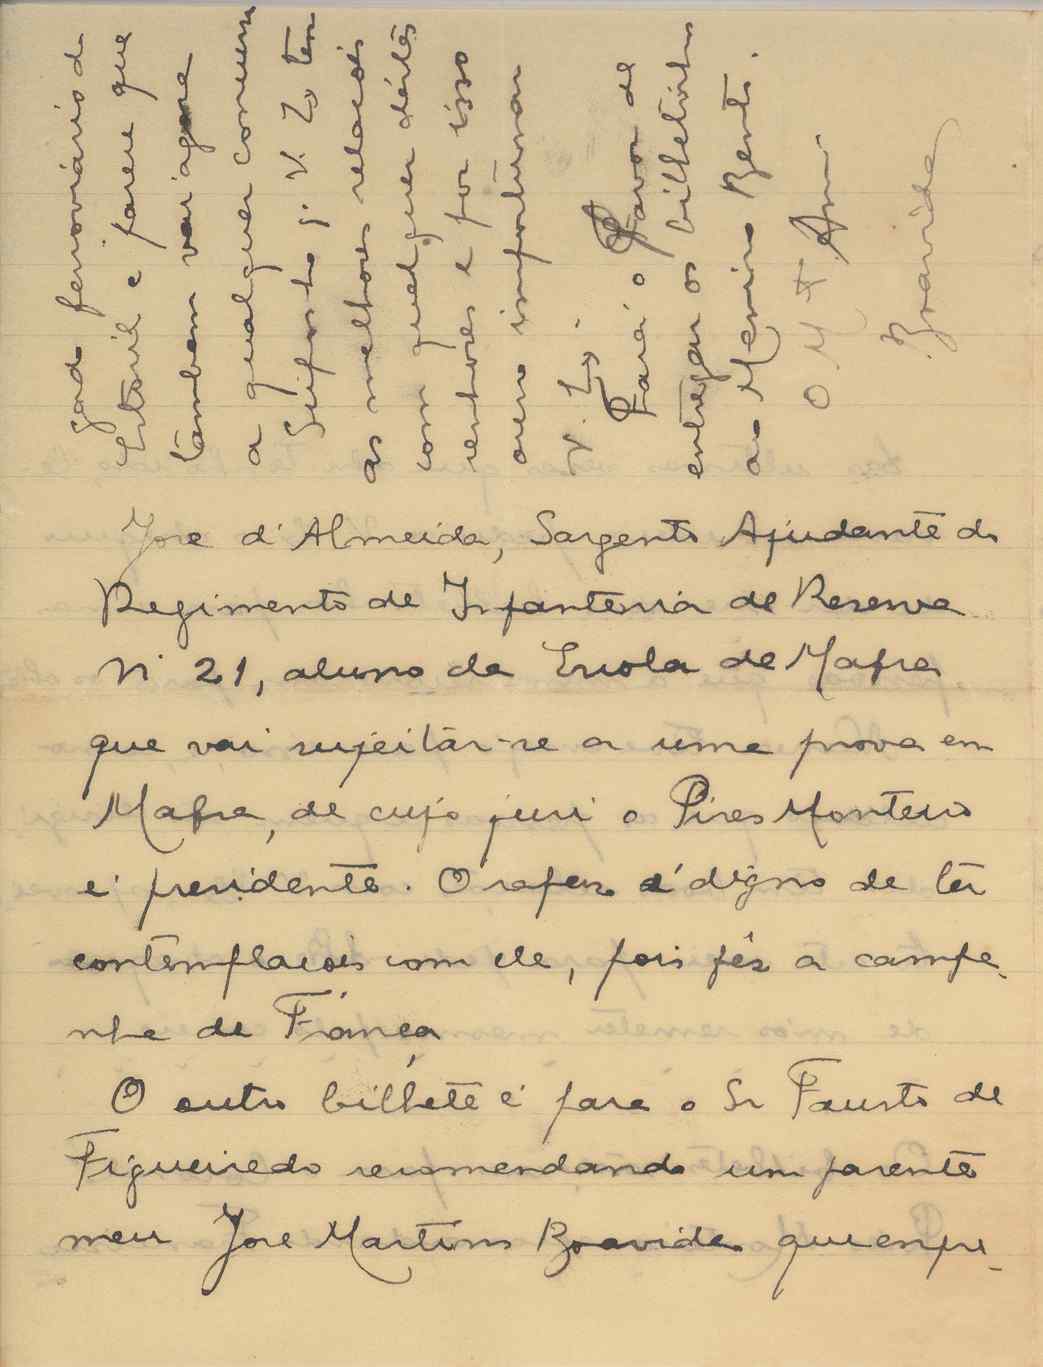 Jose d'Almeida, Sargento Ajudante do
Regimento de Infanteria de Reserva
Nº 21, aluno da Escola de Mafra
que vai sujeitar-se a uma prova em
Mafra, de cujo juri o Pires Monteiro
é presidente. O rapaz é digno de ter
contemplacois com ele, pois fêz a campa-
nha de França
O outro bilhete é para o Sr Fausto de
Figueiredo recomendando um parente
meu Jose Martins Boavida que enpre-
gado ferroviário do
Estoril e parece que
tambem vai agora
a qualquer comum
V. Exª tem
as melhores relacois
com qualquer dêstes
senhores e por isso
ouso importunar
V. Exª.
Fará o favor de
entregar os bilhetinhos
ao Menino Bento.
O Mtº Amº
Boavida